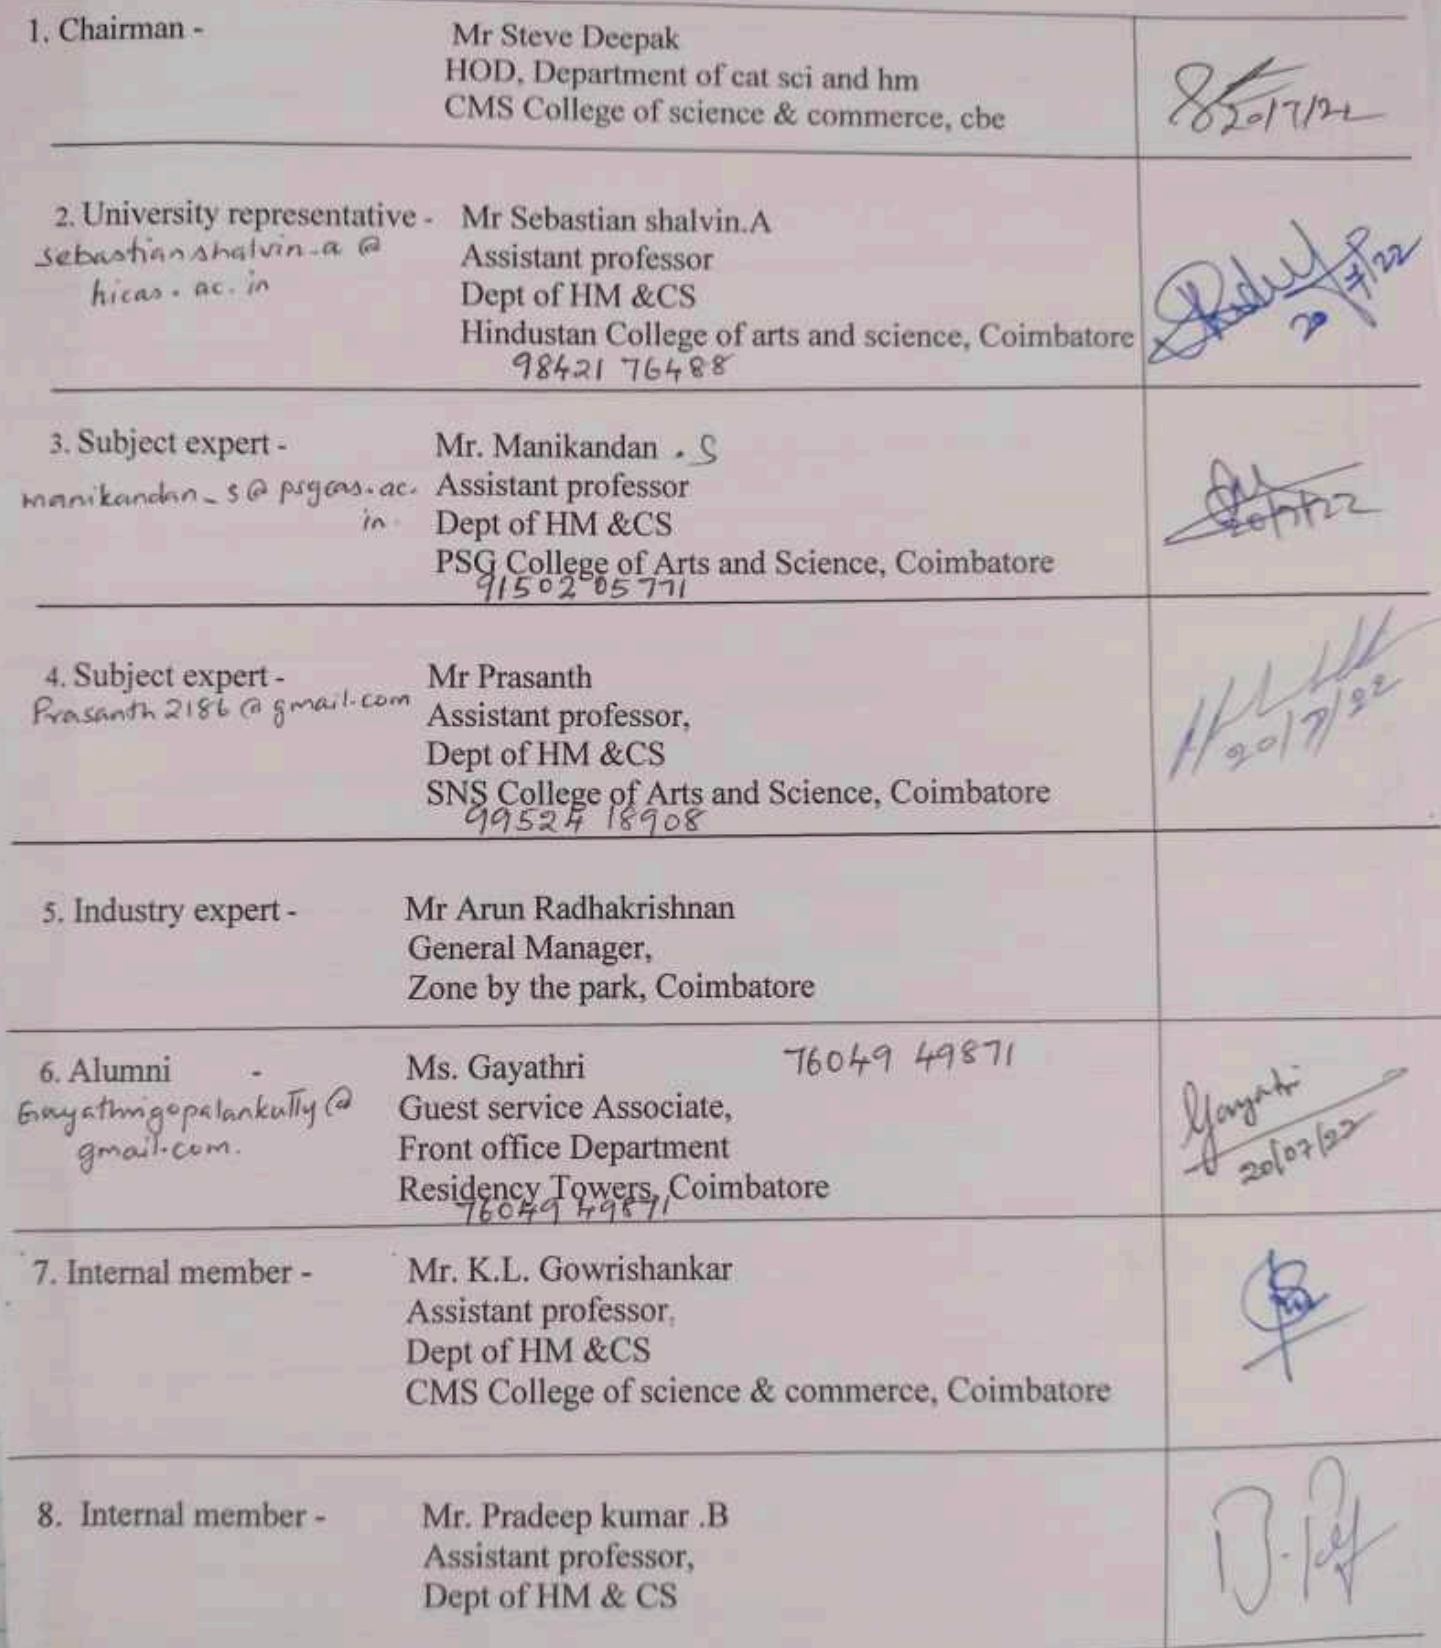 1. Chairman - Mr Steve Deepak
HOD, Department of cat sci and hm
CMS College of science & commerce, cbe
20/7/22
2. University representative - Mr Sebastian shalvin.A
sebastianshalvin_a@
hicas.ac.in
Assistant professor
Dept of HM &CS
Hindustan College of arts and science, Coimbatore
98421 76488
20/7/22
3. Subject expert - Mr. Manikandan . S
manikandan_s@psgcas.ac.
in
Assistant professor
Dept of HM &CS
PSG College of Arts and Science, Coimbatore
91502 05771
20/7/22
4. Subject expert - Mr Prasanth
Prasanth2186@gmail.com
Assistant professor,
Dept of HM &CS
SNS College of Arts and Science, Coimbatore
99524 18908
20/7/22
5. Industry expert - Mr Arun Radhakrishnan
General Manager,
Zone by the park, Coimbatore
6. Alumni - Ms. Gayathri 76049 49871
Gayathrigopalankutty@
gmail.com.
Guest service Associate,
Front office Department
Residency Towers, Coimbatore
76049 49871
Gayatri
20/07/22
7. Internal member - Mr. K.L. Gowrishankar
Assistant professor,
Dept of HM &CS
CMS College of science & commerce, Coimbatore
8. Internal member - Mr. Pradeep kumar .B
Assistant professor,
Dept of HM & CS